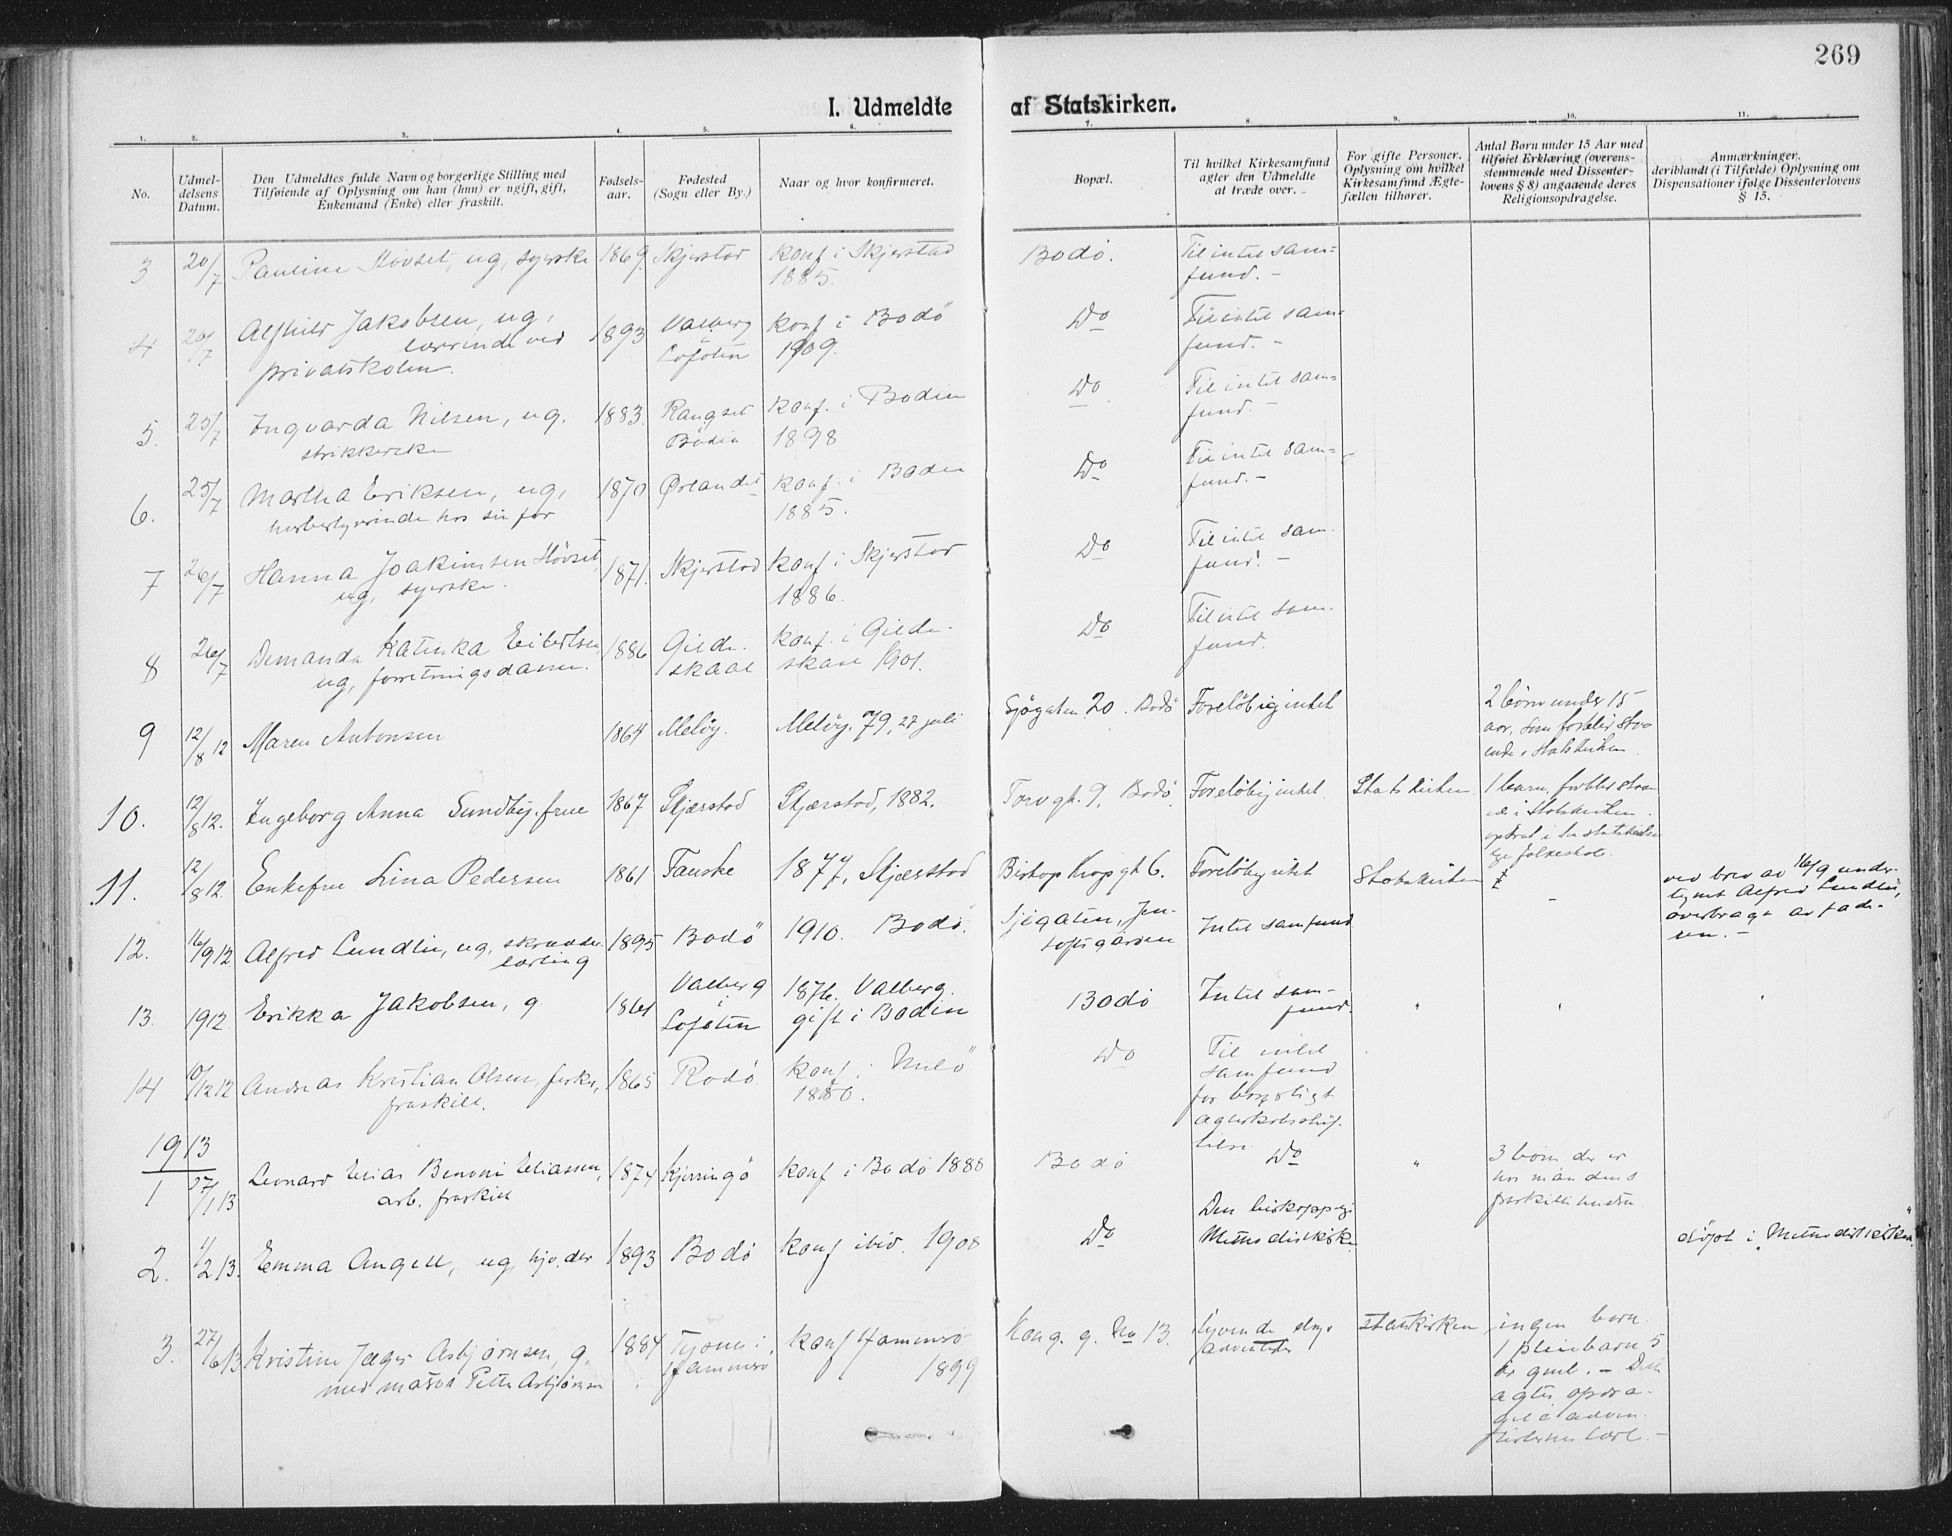 269
I. Udmeldte af Statskirken.
1. 2. 3. 4. 5. 6. 7. 8. 9. 10. 11.
No.
Udmel-
delsens
Datum.
Den Udmeldtes fulde Navn og borgerlige Stilling med
Tilføiende af Oplysning om han (hun) er ugift, gift,
Enkemand (Enke) eller fraskilt.
Fødsels-
aar.
Fødested
(Sogn eller By.)
Naar og hvor konfirmeret.
Bopæl.
Til hvilket Kirkesamfund
agter den Udmeldte
at træde over.
For gifte Personer.
Oplysning om hvilket
Kirkesamfund Ægte-
fællen tilhører.
Antal Børn under 15 Aar med
tilføiet Erklæring (overens-
stemmende med Dissenter-
lovens § 8) angaaende deres
Religionsopdragelse.
Anmærkninger.
deriblandt (i Tilfælde) Oplysning om
Dispensationer ifølge Dissenterlovens
§ 15.
3 20/7 Pauline Høvset, ug, syerske 1869. Skjerstad konf i Skjerstad
1885.
Bodø. Til intet sam-
fund. -
4 20/7 Alfhild Jakobsen, ug,
lærerinde ved
privatskolen.
1893 Valberg
Lofoten
konf i Bodö
1909.
Do Til intet sam-
fund. -
5. 25/7 Ingvarda Nilsen, ug.
strikkerske
1883.
Bodin
konf. i Bodin
1898
Do Til intet sam-
fund. -
6. 25/7 Martha Eriksen, ug,
hos sin far
1870 Ørlandet konf. i Bodin
1885.
Do Til intet sam-
fund. -
7 26/7 Hanna Joakimsen Høvset,
ug, syerske.
1871. Skjerstad konf. i Skjerstad
1886.
Do Til intet sam-
fund. -
8 26/7 Demanda Katinka Eilertsen
ug, forretningsdame.
1886 Gilde-
skaal
konf. i Gilde-
skaal 1901.
Do Til intet sam-
fund.
9 12/8 12 Maren Antonsen 1864 Meløy. Meløy. 79, 27 juli
Sjøgaten 20. Bodø Foreløbig intet 2 børn under 15
aar, som
ende i Statskirken
10. 12/8 12. Ingeborg Anna Sundby, frue 1867 Skjærstad Skjærstad, 1882.
Torvgt. 9, Bodø Foreløbig intet Statskirken 1 barn,
i Statskirken
folkeskole.
11. 12/8 12 Enkefru Lina Pedersen 1861 Fauske 1877, Skjærstad
Biskop Krops gt 6. Foreløbig intet Statskirken
12. 16/9 12 Alfred Lundlie, ug, skrædder
lærling
1895 Bodö 1910. Bodø.
Sjøgaten, Jen-
toftgården
Intet samfund
ved brev av 16/9 under-
tegnet Alfred Lundli,
overbragt av fade-
ren. -
13. 1912 Erikka Jakobsen, g 1861 Valberg
i
Lofoten
1876. Valberg.
gift i Bodin
Bodø Intet sam-
fund. " "
14 /12 12 Andreas Kristian Olsen,
fraskilt.
1865 Rødø. konf. i
1880.
Do Til intet
samfund
for borgerligt
1913
1 27/1 13 Leonard Elias Benoni Eliassen,
arb. fraskilt
1874 Kjerringø konf i Bodø 1888
Bodø Do " 3 born der er
hos mandens
fraskilte hustru
2. 11/2 13. Emma Angell, ug, 1893 Bodø konf ibid. 1908
Do Den biskoppelige
Methodistkirke
døpt i Methodistkirken
3. 27/6 13 Kristine Jæger Asbjørnsen, g.
med Petter Asbjørnsen
1884
Hammerø
konf Hammerø
1899
Kong. g. No 13. syvende dags
adventister
statskirken ingen born
1 pleiebarn 5
år gml. - Det
agtes opdra-
get i adven-
tisternes lære. -